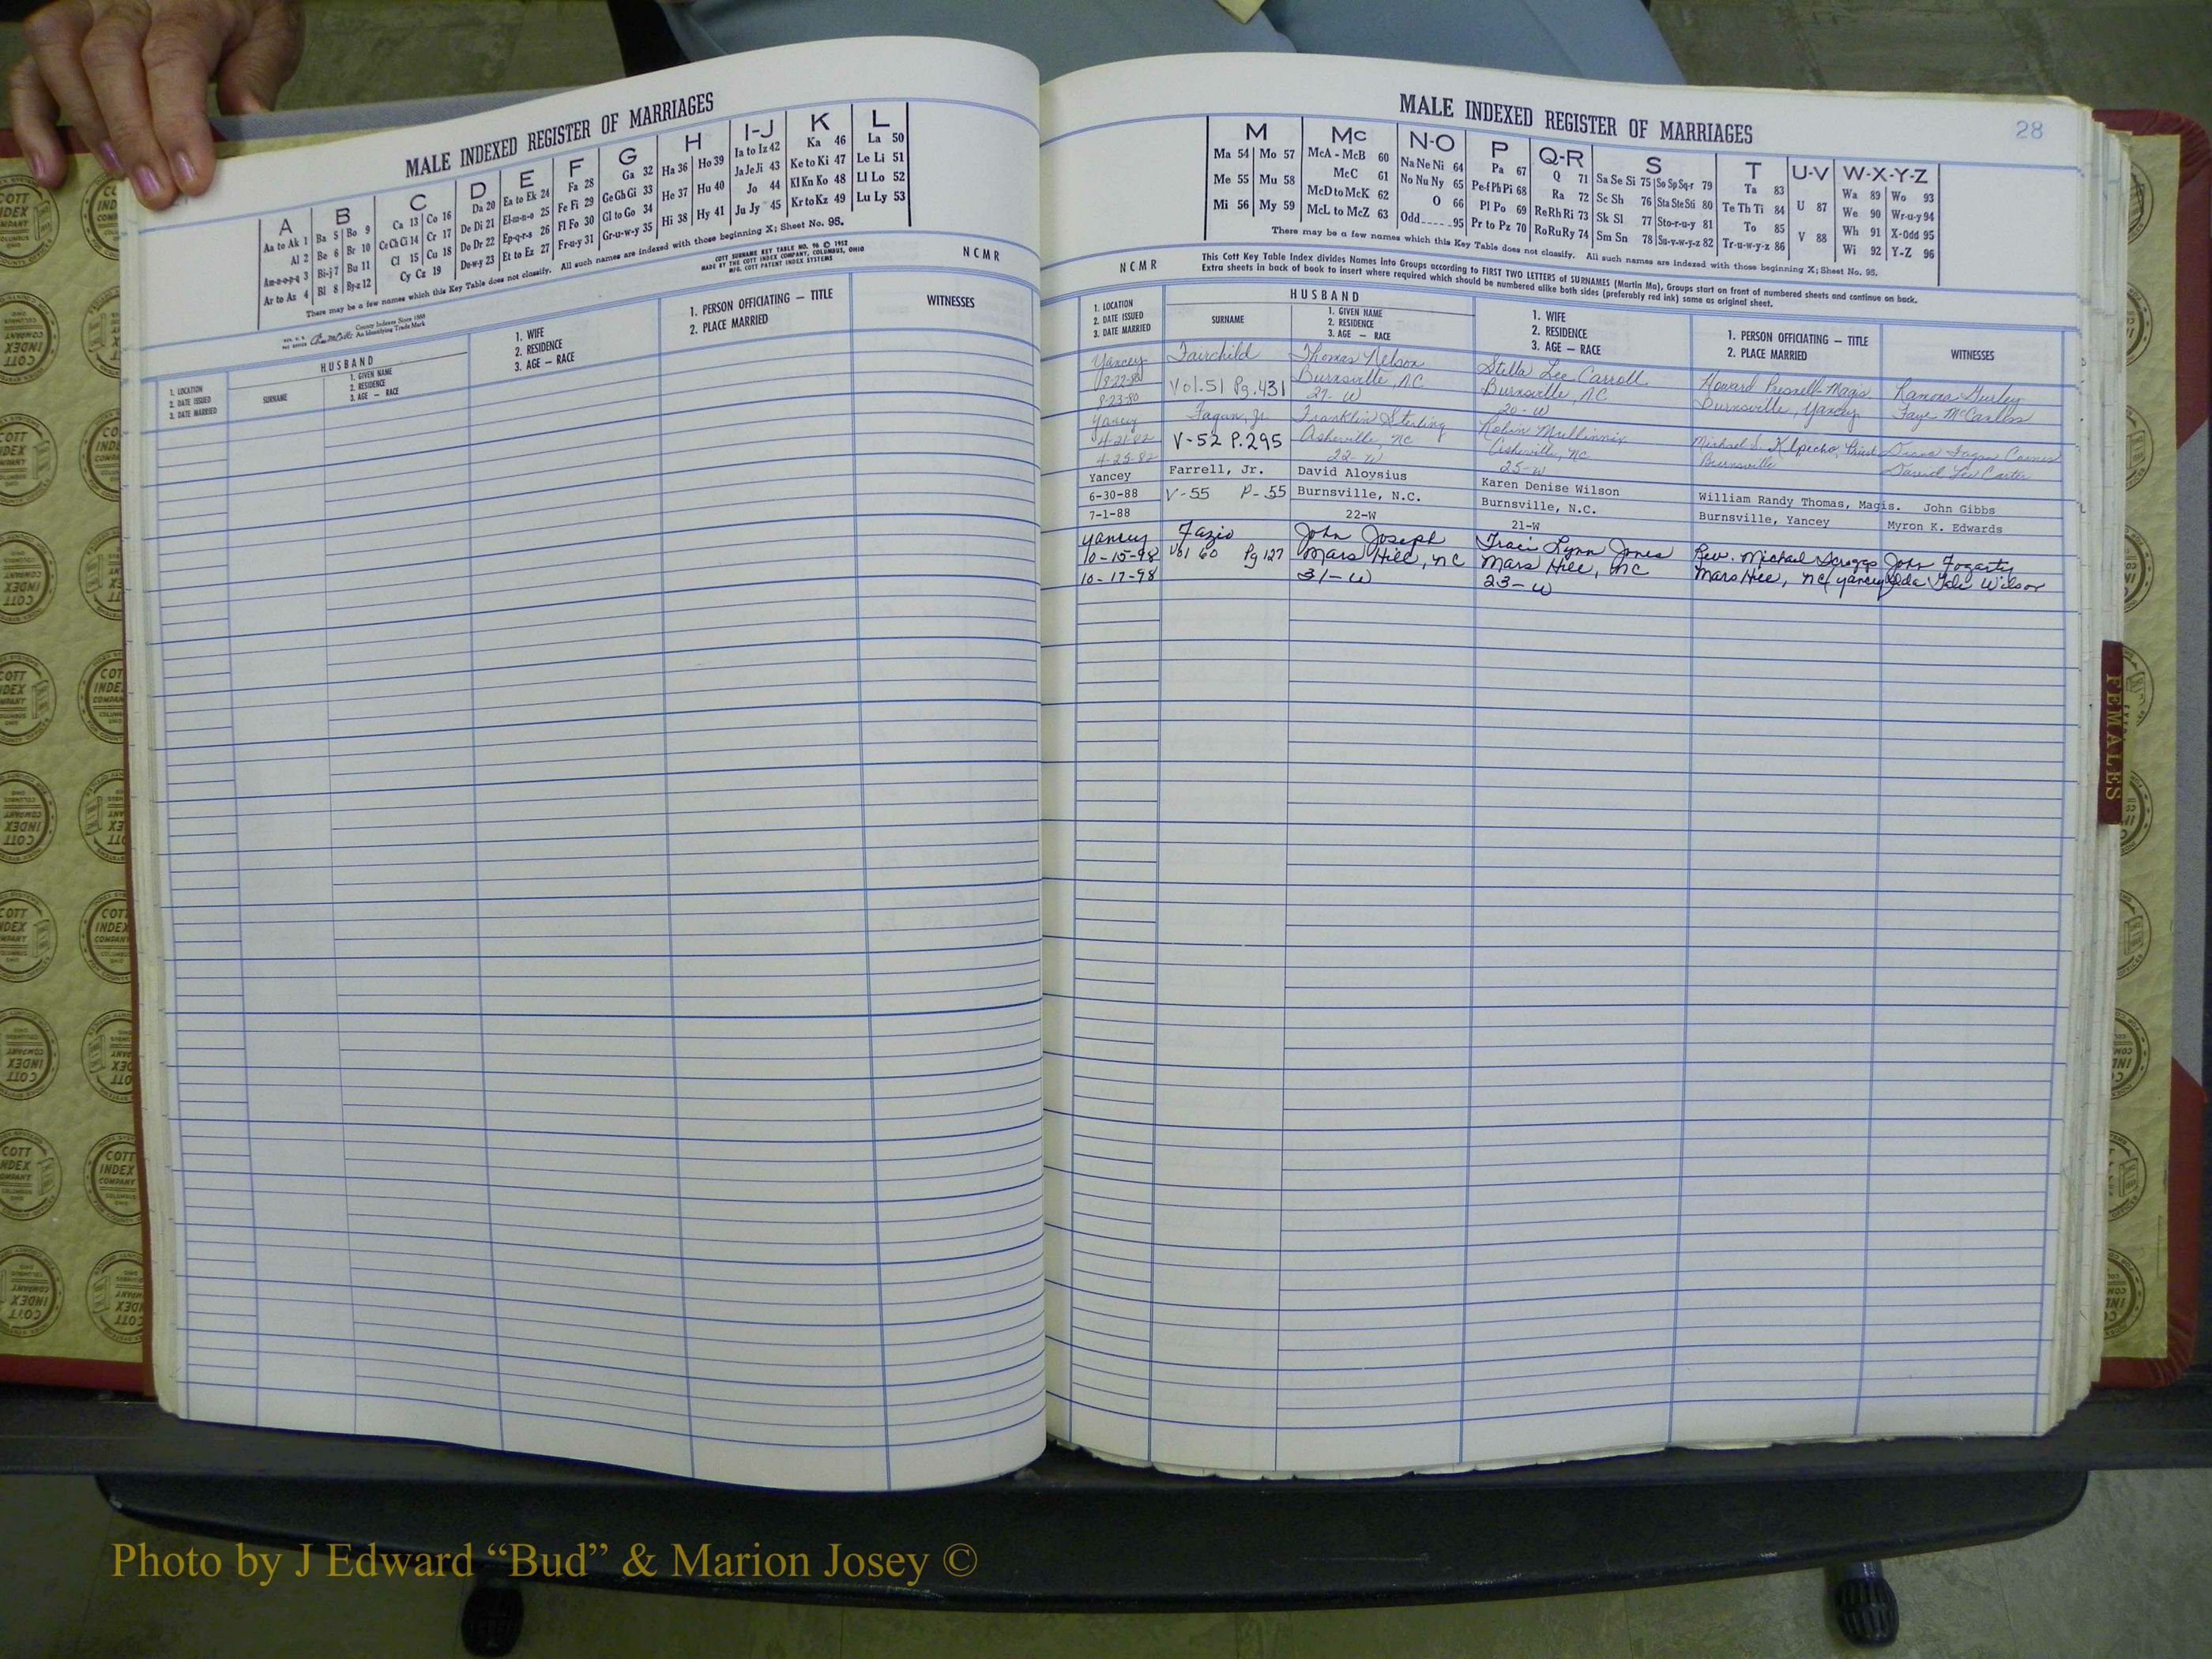 MALE INDEXED REGISTER OF MARRIAGES
A B C D E F G H I-J K L
Aa to Ak 1 Ba 5 Bo 9 Ca 13 Co 16 Da 20 Ea to Ek 24 Fa 28 Ga 32 Ha 36 Ho 39 Ia to Iz 42 Ka 46 La 50
Al 2 Be 6 Br 10 Ce Ch Ci 14 Cr 17 De Di 21 El-m-n-o 25 Fe Fi 29 Ge Gh Gi 33 He 37 Hu 40 Ja Je Ji 43 Ke to Ki 47 Le Li 51
Am-n-o-p-q 3 Bi-j 7 Bu 11 Cl 15 Cu 18 Do Dr 22 Ep-q-r-s 26 Fl Fo 30 Gl to Go 34 Hi 38 Hy 41 Jo 44 Kl Kn Ko 48 Ll Lo 52
Ar to Az 4 Bl 8 By-z 12 Cy Cz 19 Du-w-y 23 Et to Ez 27 Fr-u-y 31 Gr-u-w-y 35 Ju Jy 45 Kr to Kz 49 Lu Ly 53
There may be a few names which this Key Table does not classify. All such names are indexed with those beginning X; Sheet No. 95.
COTT SURNAME KEY TABLE NO. 96 © 1952
MADE BY THE COTT INDEX COMPANY, COLUMBUS, OHIO
MFG. COTT PATENT INDEX SYSTEMS
N C M R
County Indexes Since 1888
An Identifying Trade Mark
HUSBAND
1. LOCATION
2. DATE ISSUED
3. DATE MARRIED
SURNAME
1. GIVEN NAME
2. RESIDENCE
3. AGE — RACE
1. WIFE
2. RESIDENCE
3. AGE — RACE
1. PERSON OFFICIATING — TITLE
2. PLACE MARRIED
WITNESSES
MALE INDEXED REGISTER OF MARRIAGES
28
M Mc N-O P Q-R S T U-V W-X-Y-Z
Ma 54 Mo 57 McA - McB 60 Na Ne Ni 64 Pa 67 Q 71 Sa Se Si 75 So Sp Sq-r 79 Ta 83 U 87 Wa 89 Wo 93
Me 55 Mu 58 McC 61 No Nu Ny 65 Pe-f Ph Pi 68 Ra 72 Sc Sh 76 Sta Ste Sti 80 Te Th Ti 84 V 88 We 90 Wr-u-y 94
Mi 56 My 59 McD to McK 62 O 66 Pl Po 69 Re Rh Ri 73 Sk Sl 77 Sto-r-u-y 81 To 85 Wh 91 X-Odd 95
McL to McZ 63 Odd 95 Pr to Pz 70 Ro Ru Ry 74 Sm Sn 78 Su-v-w-y-z 82 Tr-u-w-y-z 86 Wi 92 Y-Z 96
There may be a few names which this Key Table does not classify. All such names are indexed with those beginning X; Sheet No. 95.
N C M R
This Cott Key Table Index divides Names into Groups according to FIRST TWO LETTERS of SURNAMES (Martin Ma), Groups start on front of numbered sheets and continue on back.
Extra sheets in back of book to insert where required which should be numbered alike both sides (preferably red ink) same as original sheet.
HUSBAND
1. LOCATION
2. DATE ISSUED
3. DATE MARRIED
SURNAME
1. GIVEN NAME
2. RESIDENCE
3. AGE — RACE
1. WIFE
2. RESIDENCE
3. AGE — RACE
1. PERSON OFFICIATING — TITLE
2. PLACE MARRIED
WITNESSES
Yancey Fairchild Thomas Nelson Stella Lee Carroll Howard Presnell Magis Ramona Gurley
8-22-80 Vol. 51 Pg. 431 Burnsville, N.C. Burnsville, NC Burnsville, Yancey Faye McCarless
8-23-80 27-W 20-W
Yancey Fagan, Jr. Franklin Sterling Robin Mullinnix Michael S. Priest Diana Fagan
4-21-82 V-52 P.295 Asheville, NC Asheville, NC Burnsville David Lee Carter
4-25-82 22-W 25-W
Yancey Farrell, Jr. David Aloysius Karen Denise Wilson William Randy Thomas, Magis. John Gibbs
6-30-88 V-55 P-55 Burnsville, N.C. Burnsville, N.C. Burnsville, Yancey Myron K. Edwards
7-1-88 22-W 21-W
Yancey Fazio John Joseph Traci Lynn Jones Rev. Michael Scroggs John Fogarty
10-15-98 Vol 60 Pg 127 Mars Hill, NC Mars Hill, NC Mars Hill, NC Yancey Wilson
10-17-98 31-W 23-W
FEMALES
COTT INDEX COMPANY COLUMBUS OHIO
Photo by J Edward “Bud” & Marion Josey ©